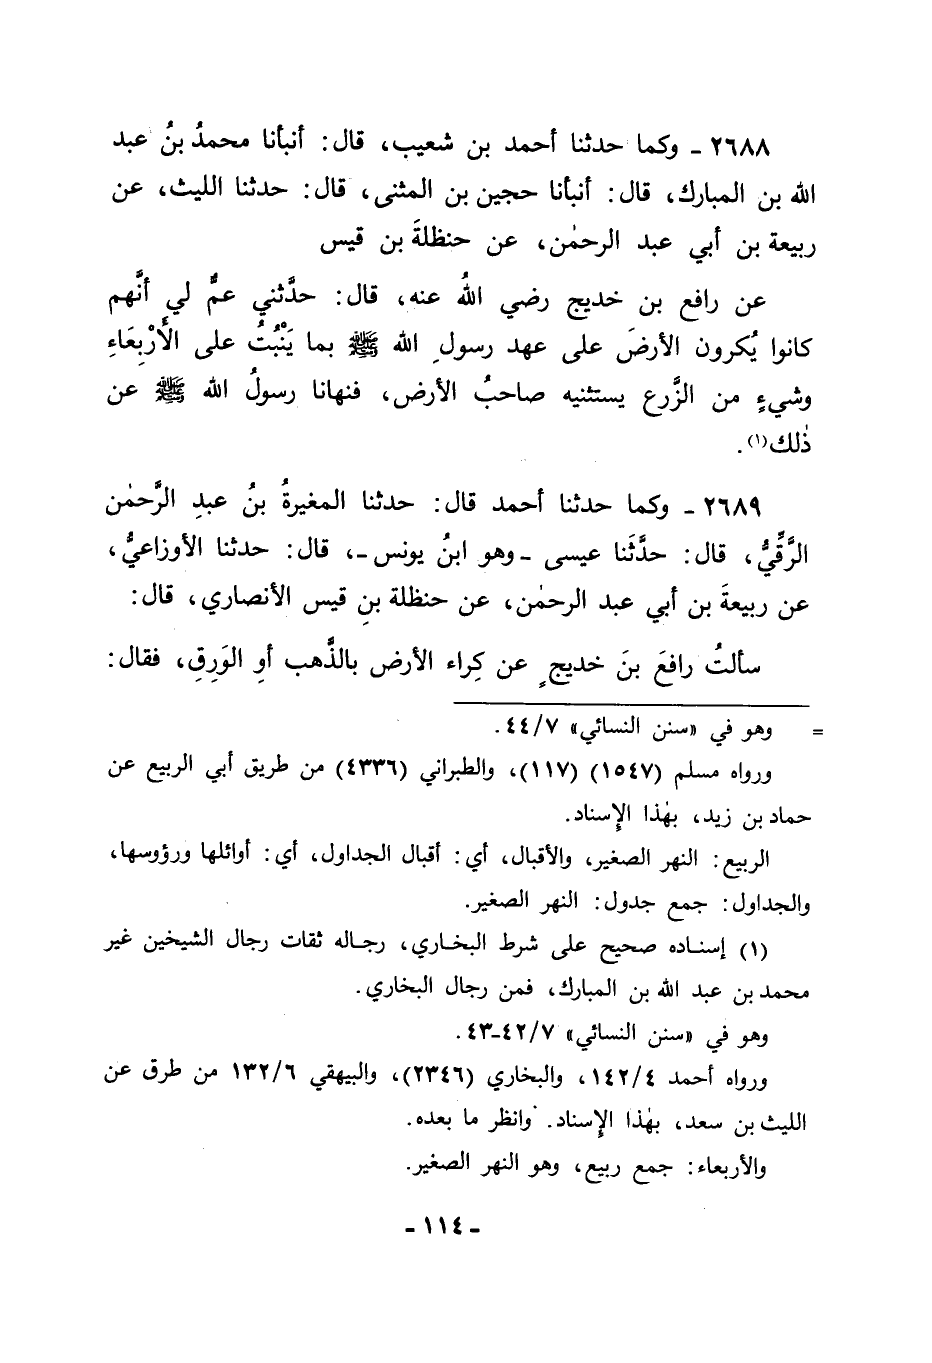 ٢٦٨٨ - وكما حدثنا أحمد بن شعيب، قال: أنبأنا محمدُ بنُ عبد
الله بن المبارك، قال: أنبأنا حجين بن المثنى، قال: حدثنا الليث، عن
ربيعة بن أبي عبد الرحمٰن، عن حنظلةَ بن قيس
عن رافع بن خديج رضي اللهُ عنه، قال: حدَّثني عمٌّ لي أنَّهم
كانوا يُكرون الأرضَ على عهد رسولِ الله ﷺ بما يَنْبُتُ على الأَرْبِعَاءِ
وشيءٍ من الزَّرع يستثنيه صاحبُ الأرض، فنهانا رسولُ الله ﷺ عن
ذٰلك(١).
٢٦٨٩ - وكما حدثنا أحمد قال: حدثنا المغيرةُ بنُ عبدِ الرَّحمٰن
الرَّقِّيُّ، قال: حدَّثَنا عيسى - وهو ابنُ يونس -، قال: حدثنا الأوزاعيُّ،
عن ربيعةَ بن أبي عبد الرحمٰن، عن حنظلة بنِ قيس الأنصاري، قال:
سألتُ رافعَ بنَ خديجٍ عن كِراء الأرض بالذَّهب أوِ الوَرِقِ، فقال:
= وهو في «سنن النسائي» ٤٤/٧.
ورواه مسلم (١٥٤٧) (١١٧)، والطبراني (٤٣٣٦) من طريق أبي الربيع عن
حماد بن زيد، بهٰذا الإِسناد.
الربيع: النهر الصغير، والأقبال، أي: أقبال الجداول، أي: أوائلها ورؤوسها،
والجداول: جمع جدول: النهر الصغير.
(١) إسناده صحيح على شرط البخاري، رجاله ثقات رجال الشيخين غير
محمد بن عبد الله بن المبارك، فمن رجال البخاري.
وهو في «سنن النسائي» ٤٢/٧-٤٣.
ورواه أحمد ١٤٢/٤، والبخاري (٢٣٤٦)، والبيهقي ١٣٢/٦ من طرق عن
الليث بن سعد، بهٰذا الإِسناد. وانظر ما بعده.
والأربعاء: جمع ربيع، وهو النهر الصغير.
- ١١٤ -